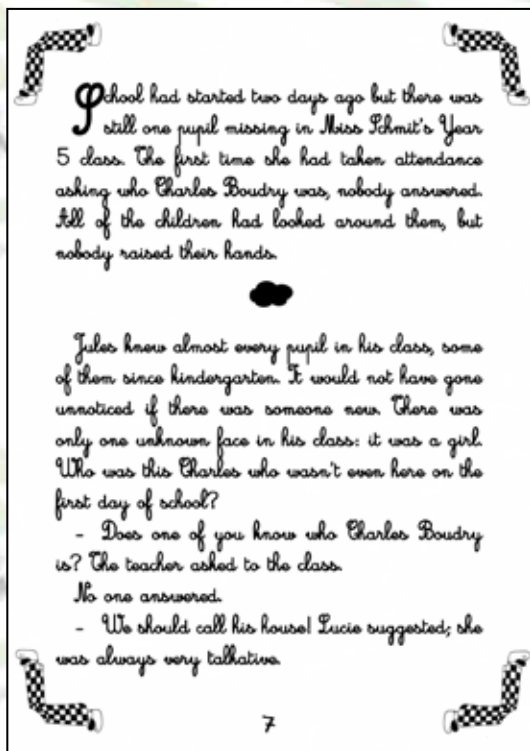 School had started two days ago but there was
still one pupil missing in Miss Schmit's Year
5 class. The first time she had taken attendance
asking who Charles Boudry was, nobody answered.
All of the children had looked around them, but
nobody raised their hands.
Jules knew almost every pupil in his class, some
of them since kindergarten. It would not have gone
unnoticed if there was someone new. There was
only one unknown face in his class: it was a girl.
Who was this Charles who wasn't even here on the
first day of school?
- Does one of you know who Charles Boudry
is? The teacher asked to the class.
No one answered.
- We should call his house! Lucie suggested; she
was always very talkative.
7